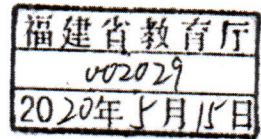 福建省教育厅
002029
2020年5月15日